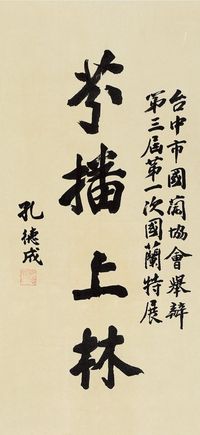 台中市國蘭協會舉辦
第三屆第一次國蘭特展
芬播上林
孔德成